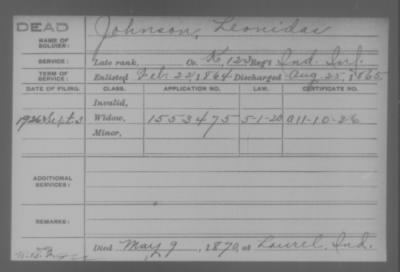 DEAD
NAME OF SOLDIER: Johnson, Leonidas
SERVICE: Late rank, Co. K, 123 Reg't Ind. Inf.
TERM OF SERVICE: Enlisted Feb. 22, 1864 Discharged Aug. 25, 1865
DATE OF FILING. CLASS. APPLICATION NO. LAW. CERTIFICATE NO.
Invalid,
1926 Sept 3 Widow, 1553475 5-1-20 A11-10-26
Minor,
ADDITIONAL SERVICES:
REMARKS:
Died May 9, 1870, at Laurel, Ind.